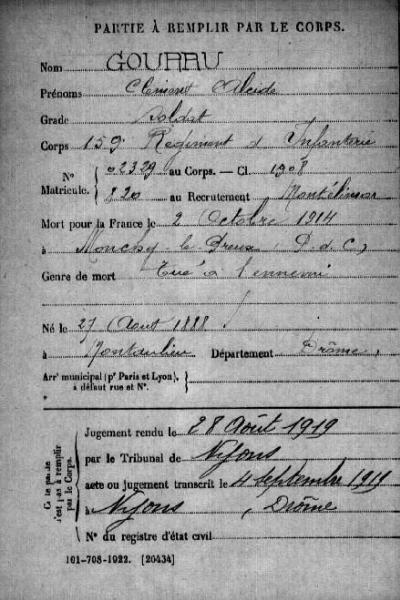 PARTIE À REMPLIR PAR LE CORPS.
Nom GOURRU
Prénoms Clément Alcide
Grade Soldat
Corps 159e Régiment d'Infanterie
N° Matricule. { 02329 au Corps. — Cl. 1908
220 au Recrutement Montélimar
Mort pour la France le 2 Octobre 1914
à Monchy le Preux, P. d. C,
Genre de mort Tué à l'ennemi
Né le 27 Août 1888
à Montaulieu Département Drôme,
Arrt municipal (pr Paris et Lyon), à défaut rue et N°. {
Jugement rendu le 28 Août 1919
par le Tribunal de Nyons
acte ou jugement transcrit le 4 septembre 1919
à Nyons, Drôme
N° du registre d'état civil
n'est pas à remplir
par le Corps.
101-708-1922. [20434]